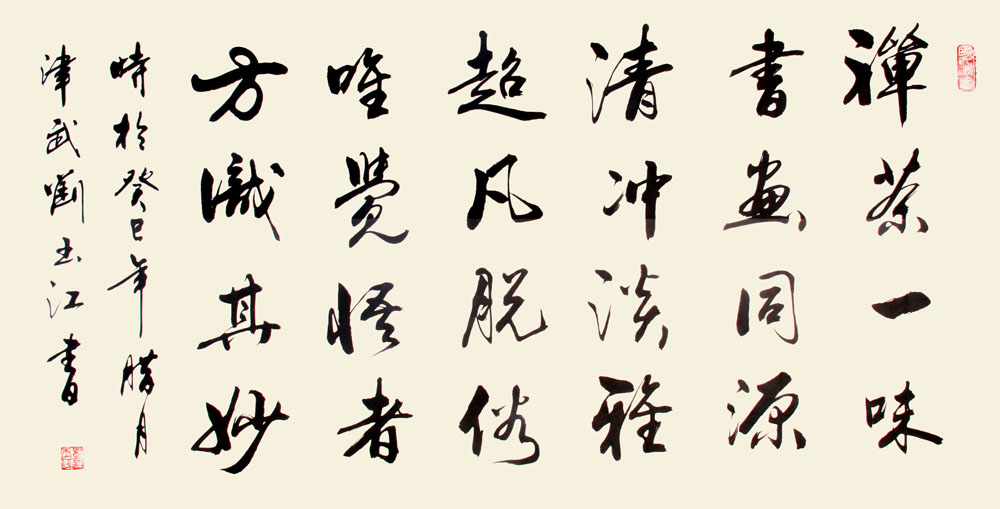 禪茶一味
書畫同源
清冲淡雅
超凡脱俗
唯覺悟者
方識其妙
時於癸巳年腊月
津武劉玉江書